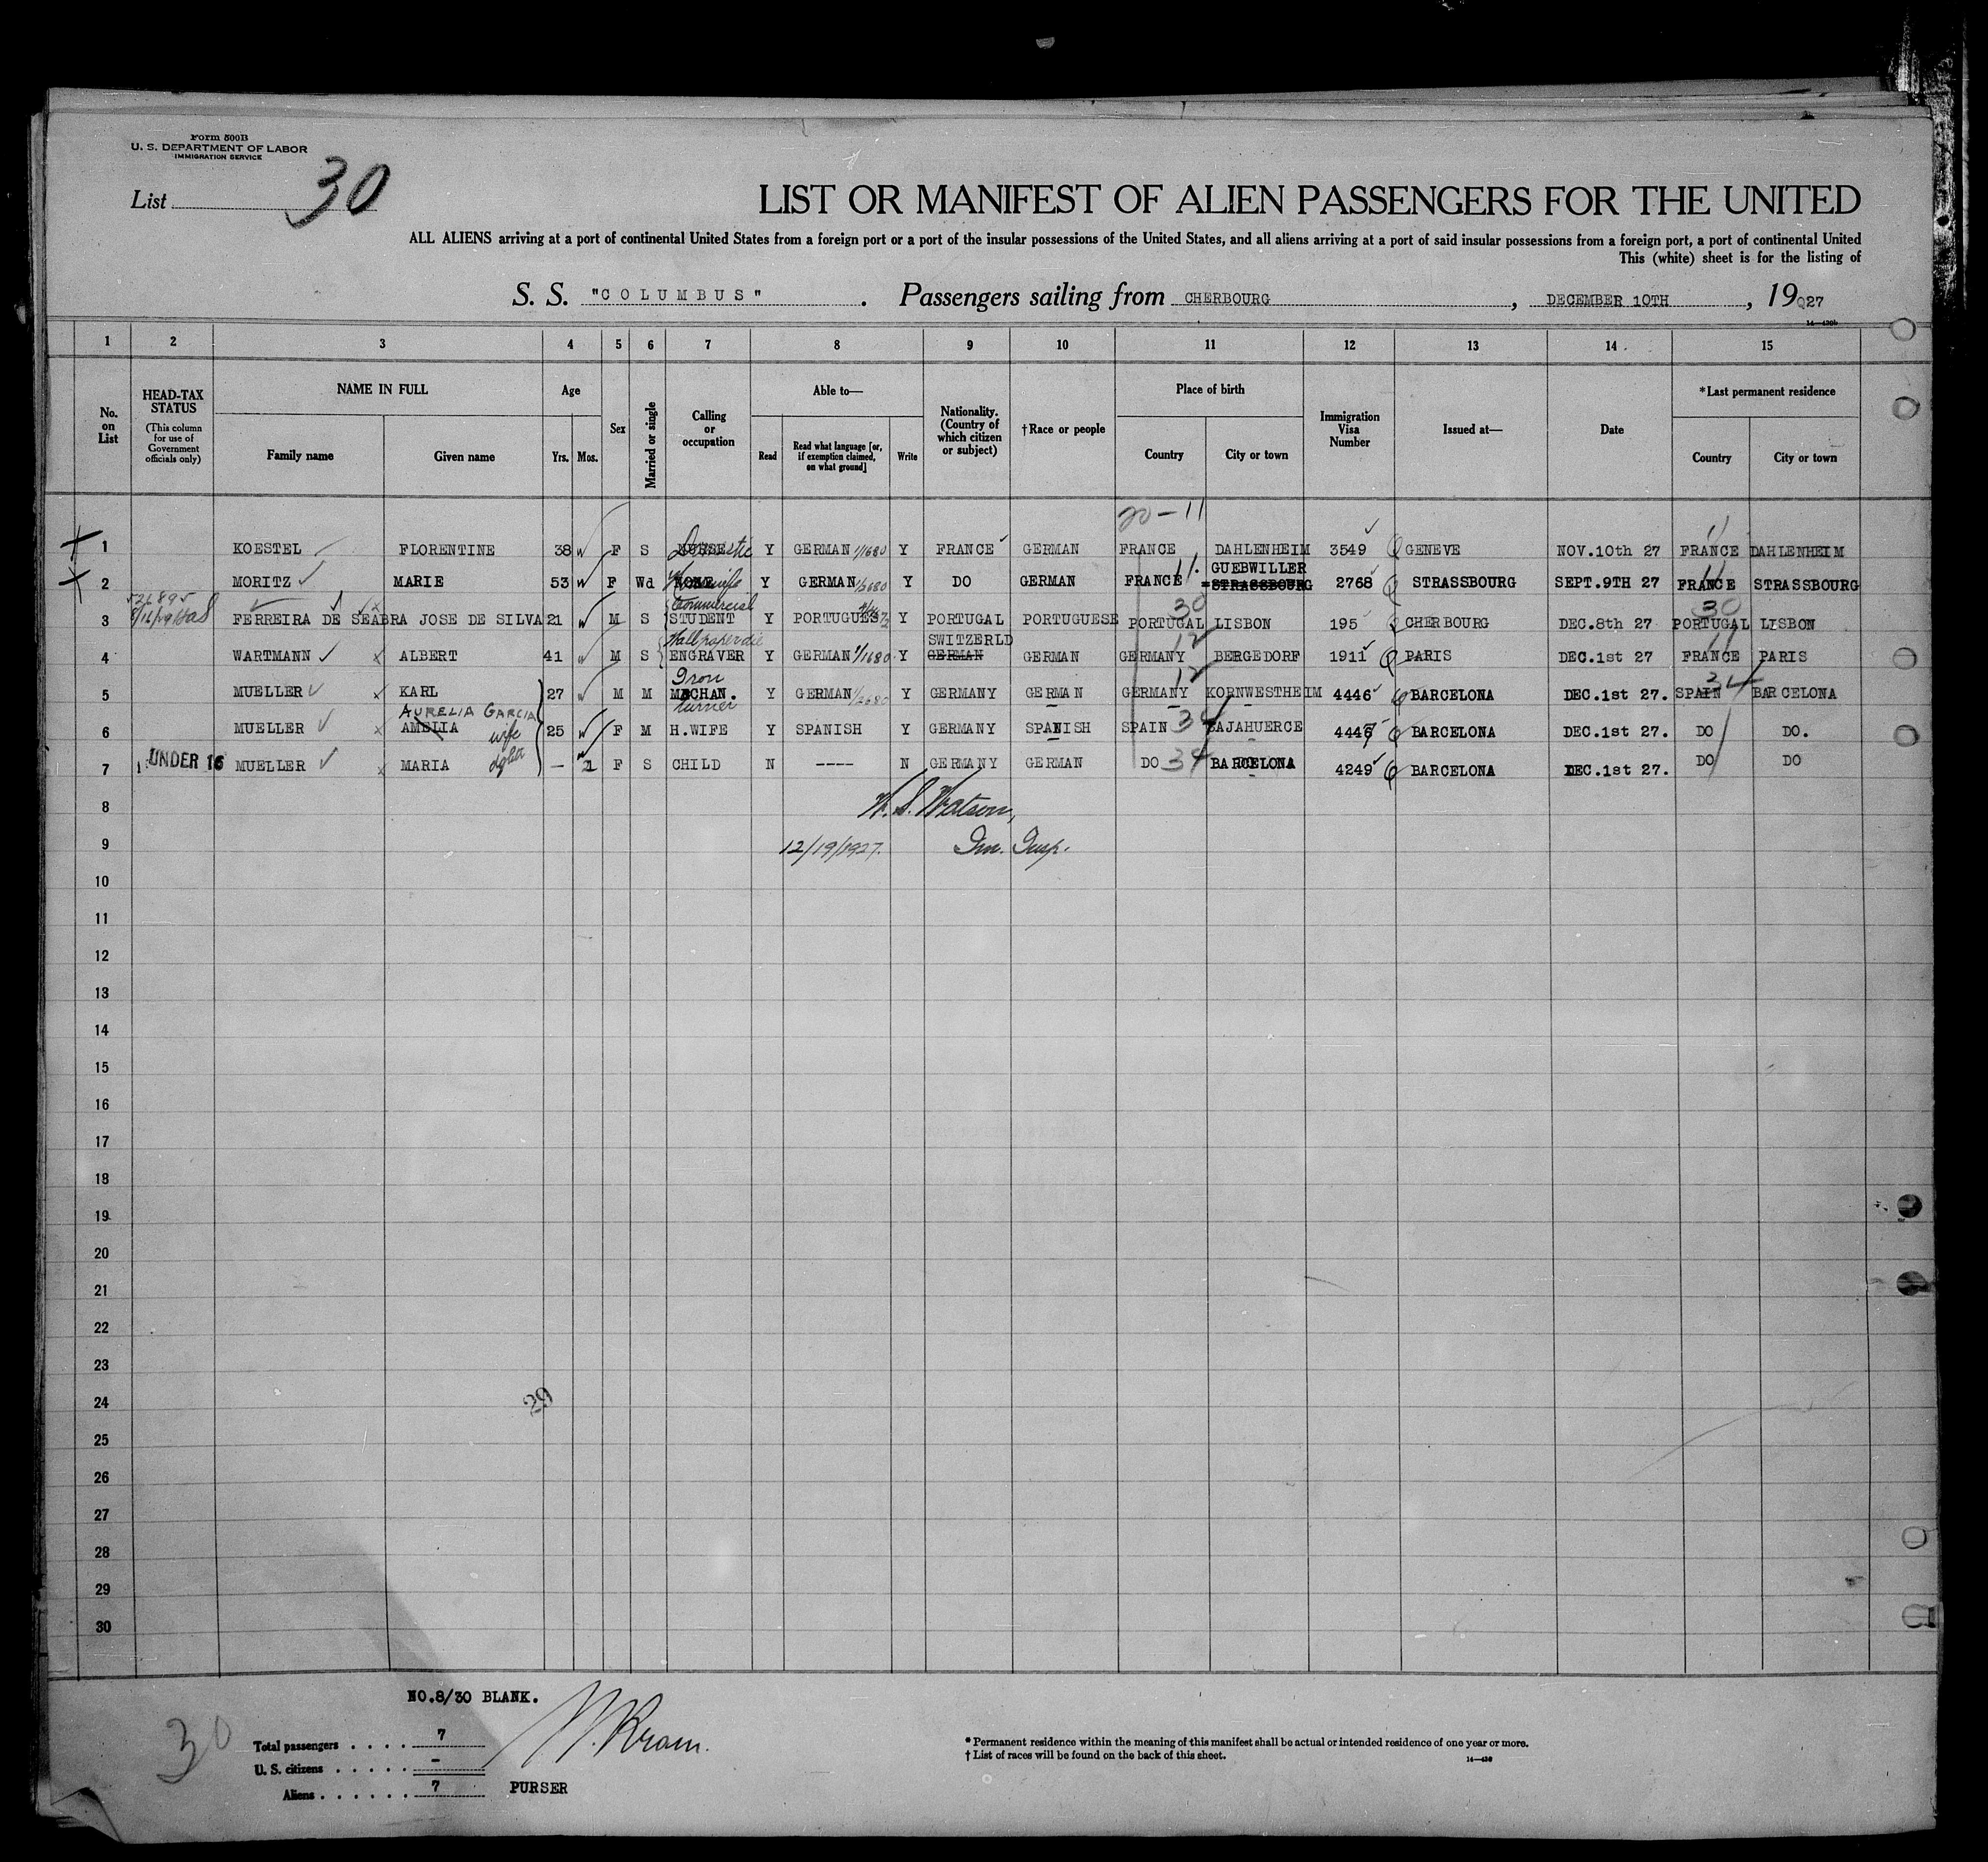 Form 500B
U. S. DEPARTMENT OF LABOR
IMMIGRATION SERVICE
List 30
LIST OR MANIFEST OF ALIEN PASSENGERS FOR THE UNITED
ALL ALIENS arriving at a port of continental United States from a foreign port or a port of the insular possessions of the United States, and all aliens arriving at a port of said insular possessions from a foreign port, a port of continental United
This (white) sheet is for the listing of
S. S. "COLUMBUS" . Passengers sailing from CHERBOURG , DECEMBER 10TH , 1927
14—430b
1 2 3 4 5 6 7 8 9 10 11 12 13 14 15
No. on List
HEAD-TAX STATUS (This column for use of Government officials only)
NAME IN FULL Family name Given name
Age Yrs. Mos.
Sex
Married or single
Calling or occupation
Able to— Read Read what language [or, if exemption claimed, on what ground] Write
Nationality. (Country of which citizen or subject)
†Race or people
Place of birth Country City or town
Immigration Visa Number
Issued at—
Date
*Last permanent residence Country City or town
20-11
1 KOESTEL FLORENTINE 38 F S Domestic Y GERMAN 1/1680 Y FRANCE GERMAN FRANCE DAHLENHEIM 3549 GENEVE NOV.10th 27 11 FRANCE DAHLENHEIM
2 MORITZ MARIE 53 F Wd NONE Housewife Y GERMAN 1/2680 Y DO GERMAN FRANCE 11 GUEBWILLER STRASSBOURG 2768 STRASSBOURG SEPT.9TH 27 11 FRANCE STRASSBOURG
526895
3 FERREIRA DE SEABRA JOSE DE SILVA 21 M S Commercial STUDENT Y PORTUGUES Y PORTUGAL PORTUGUESE 30 PORTUGAL LISBON 195 CHERBOURG DEC.8th 27 30 PORTUGAL LISBON
4 WARTMANN ALBERT 41 M S Wallpaper die ENGRAVER Y GERMAN 1/1680 Y SWITZERLD GERMAN GERMAN 12 GERMANY BERGEDORF 1911 PARIS DEC.1st 27 11 FRANCE PARIS
5 MUELLER KARL 27 M M Iron MECHAN. turner Y GERMAN 1/2680 Y GERMANY GERMAN 12 GERMANY KORNWESTHEIM 4446 BARCELONA DEC.1st 27. 34 SPAIN BARCELONA
AURELIA GARCIA
6 MUELLER AMELIA wife 25 F M H.WIFE Y SPANISH Y GERMANY SPANISH SPAIN 34 BAJAHUERCE 4447 BARCELONA DEC.1st 27. DO DO.
7 UNDER 16 MUELLER MARIA dghtr — 1 F S CHILD N ---- N GERMANY GERMAN DO 34 BARCELONA 4249 BARCELONA DEC.1st 27. DO DO
8 W. S. Watson,
9 12/19/1927. Im. Insp.
10
11
12
13
14
15
16
17
18
19
20
21
22
23
24 29
25
26
27
28
29
30
NO.8/30 BLANK.
30
Total passengers . . . . 7
U. S. citizens . . . . . -
Aliens . . . . . . 7 PURSER
* Permanent residence within the meaning of this manifest shall be actual or intended residence of one year or more.
† List of races will be found on the back of this sheet.
14—430